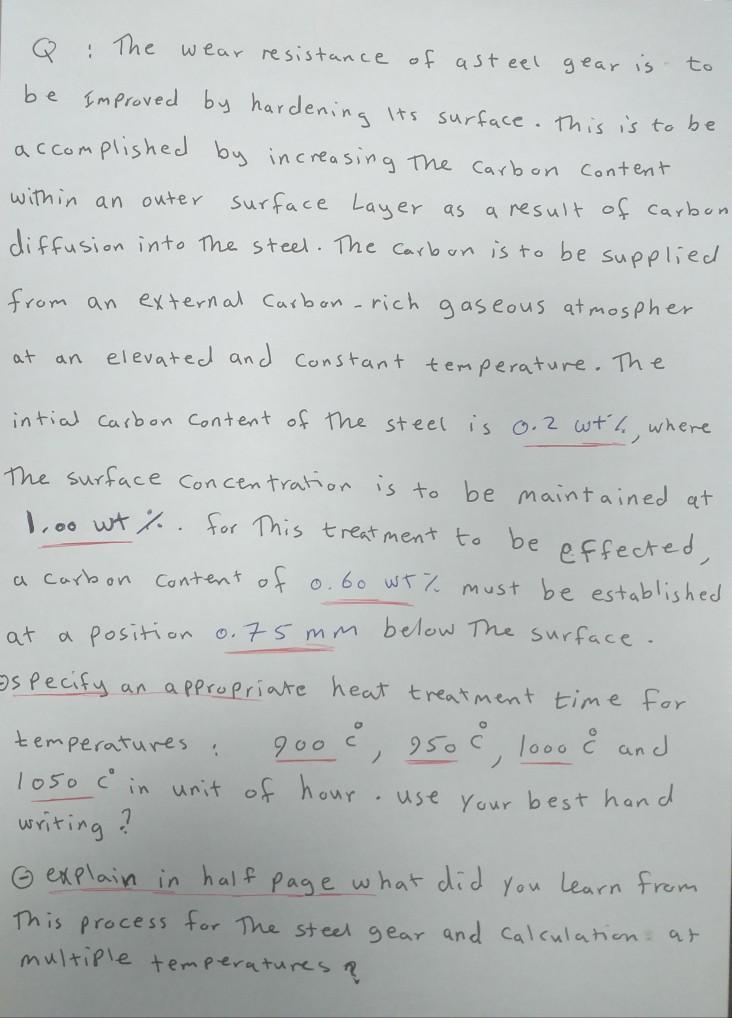 Q : The wear resistance of a steel gear is to
be Improved by hardening Its surface. This is to be
accomplished by increasing The Carbon Content
within an outer surface Layer as a result of Carbon
diffusion into The steel. The Carbon is to be supplied
from an external Carbon-rich gaseous atmospher
at an elevated and Constant temperature. The
intial Carbon Content of The steel is 0.2 wt%, where
The surface Concentration is to be maintained at
1.00 wt %. for This treatment to be effected,
a Carbon Content of 0.60 wt % must be established
at a position 0.75 mm below The surface.
specify an appropriate heat treatment time for
temperatures : 900 C°, 950 C°, 1000 C° and
1050 C° in unit of hour. use your best hand
writing ?
explain in half page what did you learn from
This process for The steel gear and Calculation at
multiple temperatures ?